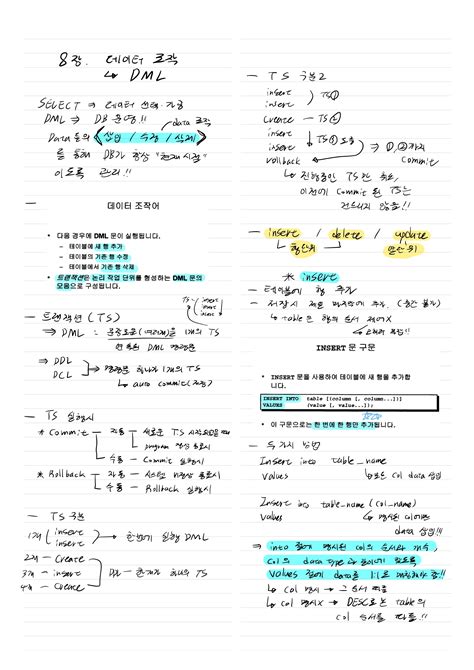 8장. 데이터 조작
↳ DML
SELECT ⇒ 데이터 선택·가공
DML ⇒ DB 운영!!
data 조작
Data들의 <삽입 / 수정 / 삭제>
를 통해 DB가 항상 "현재 시점"
이도록 관리!!
데이터 조작어
• 다음 경우에 DML 문이 실행됩니다.
– 테이블에 새 행 추가
– 테이블의 기존 행 수정
– 테이블에서 기존 행 삭제
• 트랜잭션은 논리 작업 단위를 형성하는 DML 문의
모음으로 구성됩니다.
TS - insert
insert
insert
— 트랜잭션 (TS)
⇒ DML : 운영으로 (여러개)를 1개의 TS
한 동일 DML 명령문들
⇒ DDL
DCL
⇒ 명령문 하나가 1개의 TS
↳ auto commit (자동)
— TS 실행시
* Commit
자동 - 새로운 TS 시작되었을 때
program 정상 종료시
수동 - Commit 실행시
* Rollback
자동 - 시스템 비정상 종료시
수동 - Rollback 실행시
— TS 구분
1개 ( insert
insert ) → 한번에 실행 DML
2개 - Create
3개 - insert
4개 - Create
DDL - 문장 하나가 하나의 TS
— TS 구분 2
insert
insert ) TS①
Create — TS②
insert
insert ↓ TS③ 도중
rollback
⇒ ①,②까지
Commit
↳ 진행중인 TS만 취소,
이전에 Commit 된 TS는
건드리지 않음!!
— insert / delete / update
↳ 행단위
열단위
* insert
— 테이블에 행 추가
— 저장시 제일 마지막에 추가. (중간 불가)
↳ table은 행의 순서 제어X
INSERT 문 구문
• INSERT 문을 사용하여 테이블에 새 행을 추가합
니다.
INSERT INTO table [(column [, column...])]
VALUES (value [, value...]);
• 이 구문으로는 한 번에 한 행만 추가됩니다.
— 두가지 방법
Insert into table_name
Values
↳ 모든 col data 삽입
Insert into table_name (col_name)
Values
↳ 명시된 데이터만
data 삽입!!
⇒ into 절에 명시된 col의 순서와 개수,
col의 data type과 길이에 맞도록
values 절에 data를 1:1로
↳ col 명시 → 그 순서 따름
↳ col 명시X → DESC로 본 table의
col 순서를 따름!